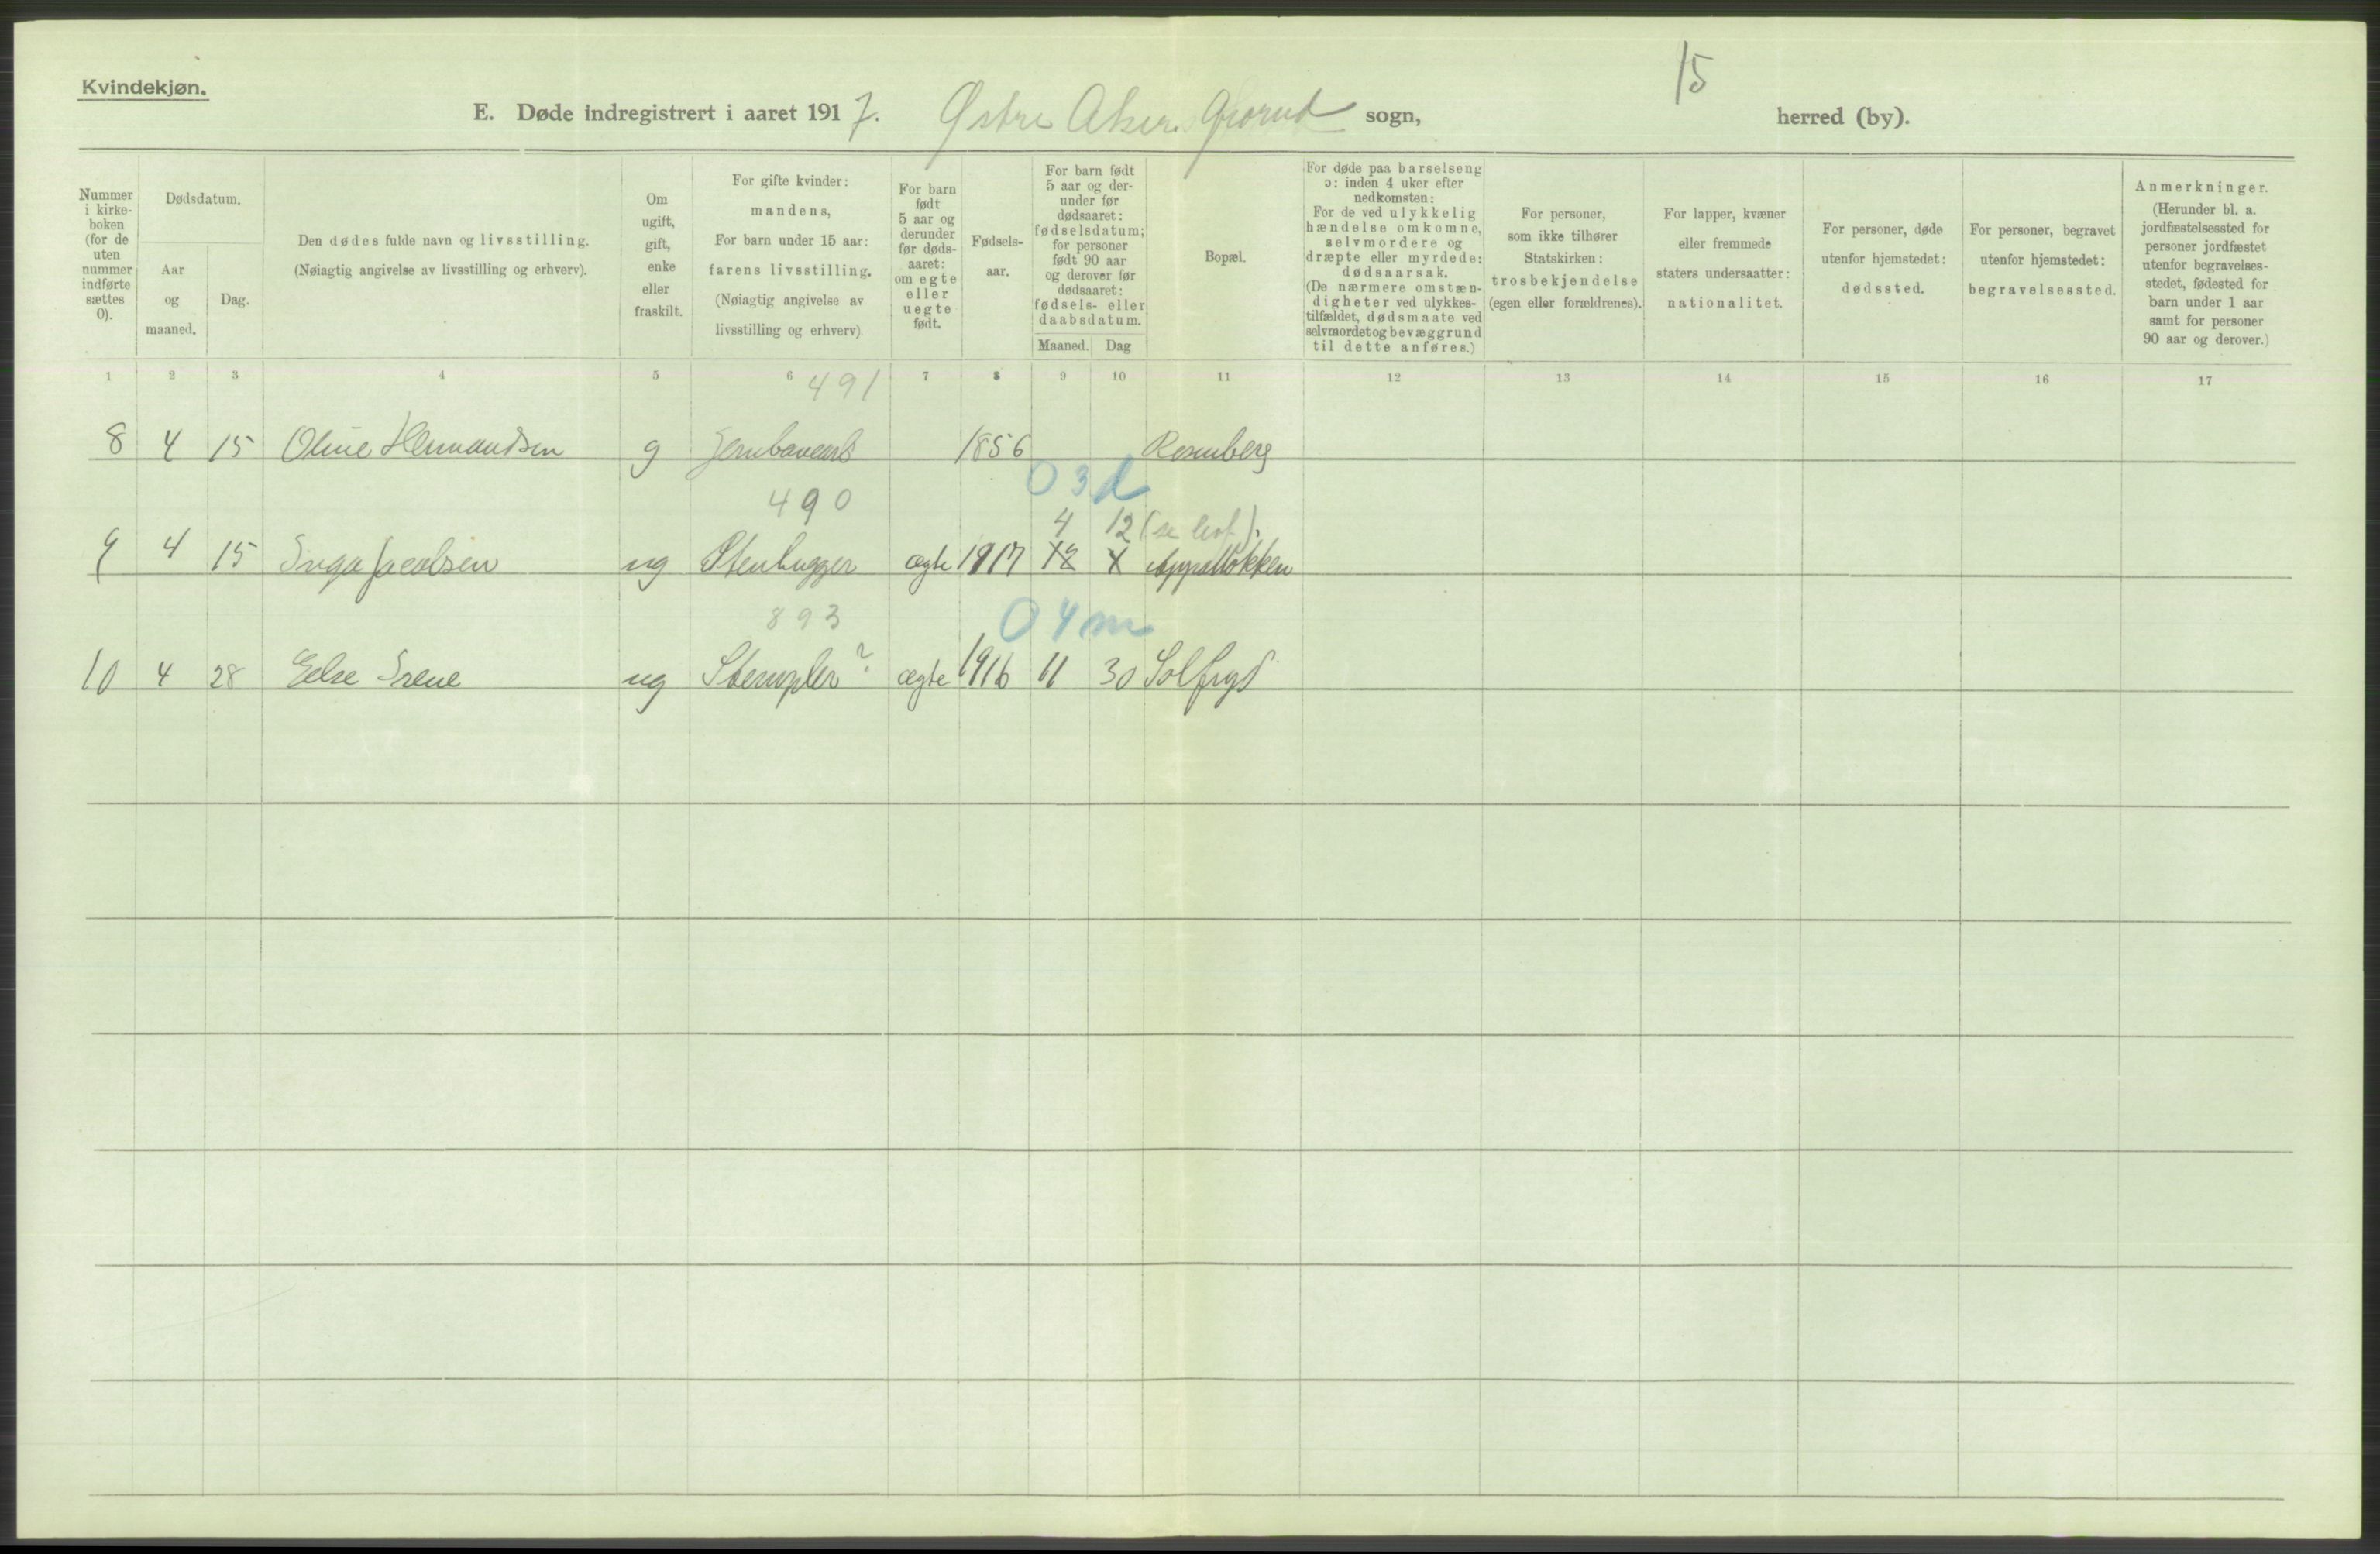 Kvindekjøn.
15
E. Døde indregistrert i aaret 1917. Østre Aker. Grorud sogn, herred (by).
Nummer i kirke-boken (for de uten nummer indførte sættes 0).
Dødsdatum.
Aar og maaned.
Dag.
Den dødes fulde navn og livsstilling.
(Nøiagtig angivelse av livsstilling og erhverv).
Om ugift, gift, enke eller fraskilt.
For gifte kvinder: mandens,
For barn under 15 aar: farens livsstilling.
(Nøiagtig angivelse av livsstilling og erhverv)
For barn født 5 aar og derunder før døds-aaret: om egte eller uegte født.
Fødsels-aar.
For barn født 5 aar og der-under før dødsaaret: fødselsdatum; for personer født 90 aar og derover før dødsaaret: fødsels- eller daabsdatum.
Maaned. Dag
Bopæl.
For døde paa barselseng ɔ: inden 4 uker efter nedkomsten:
For de ved ulykkelig hændelse omkomne, selvmordere og dræpte eller myrdede: dødsaarsak.
(De nærmere omstæn-digheter ved ulykkes-tilfældet, dødsmaate ved selvmordet og bevæggrund til dette anføres.)
For personer, som ikke tilhører Statskirken: trosbekjendelse (egen eller forældrenes).
For lapper, kvæner eller fremmede staters undersaatter: nationalitet.
For personer, døde utenfor hjemstedet: dødssted.
For personer, begravet utenfor hjemstedet: begravelsessted.
Anmerkninger.
(Herunder bl. a. jordfæstelsessted for personer jordfæstet utenfor begravelses-stedet, fødested for barn under 1 aar samt for personer 90 aar og derover.)
1 2 3 4 5 6 7 8 9 10 11 12 13 14 15 16 17
491
8 4 15 Oline Hermandsen g 1856 Rosenberg
0 3 d
490
4 12
9 4 15 Inga Jacobsen ug Stenhugger ægte 1917 12 4 Appalløkken
893
0 4 m
10 4 28 Else Irene ug Stempler? ægte 1916 11 30 Solfryd